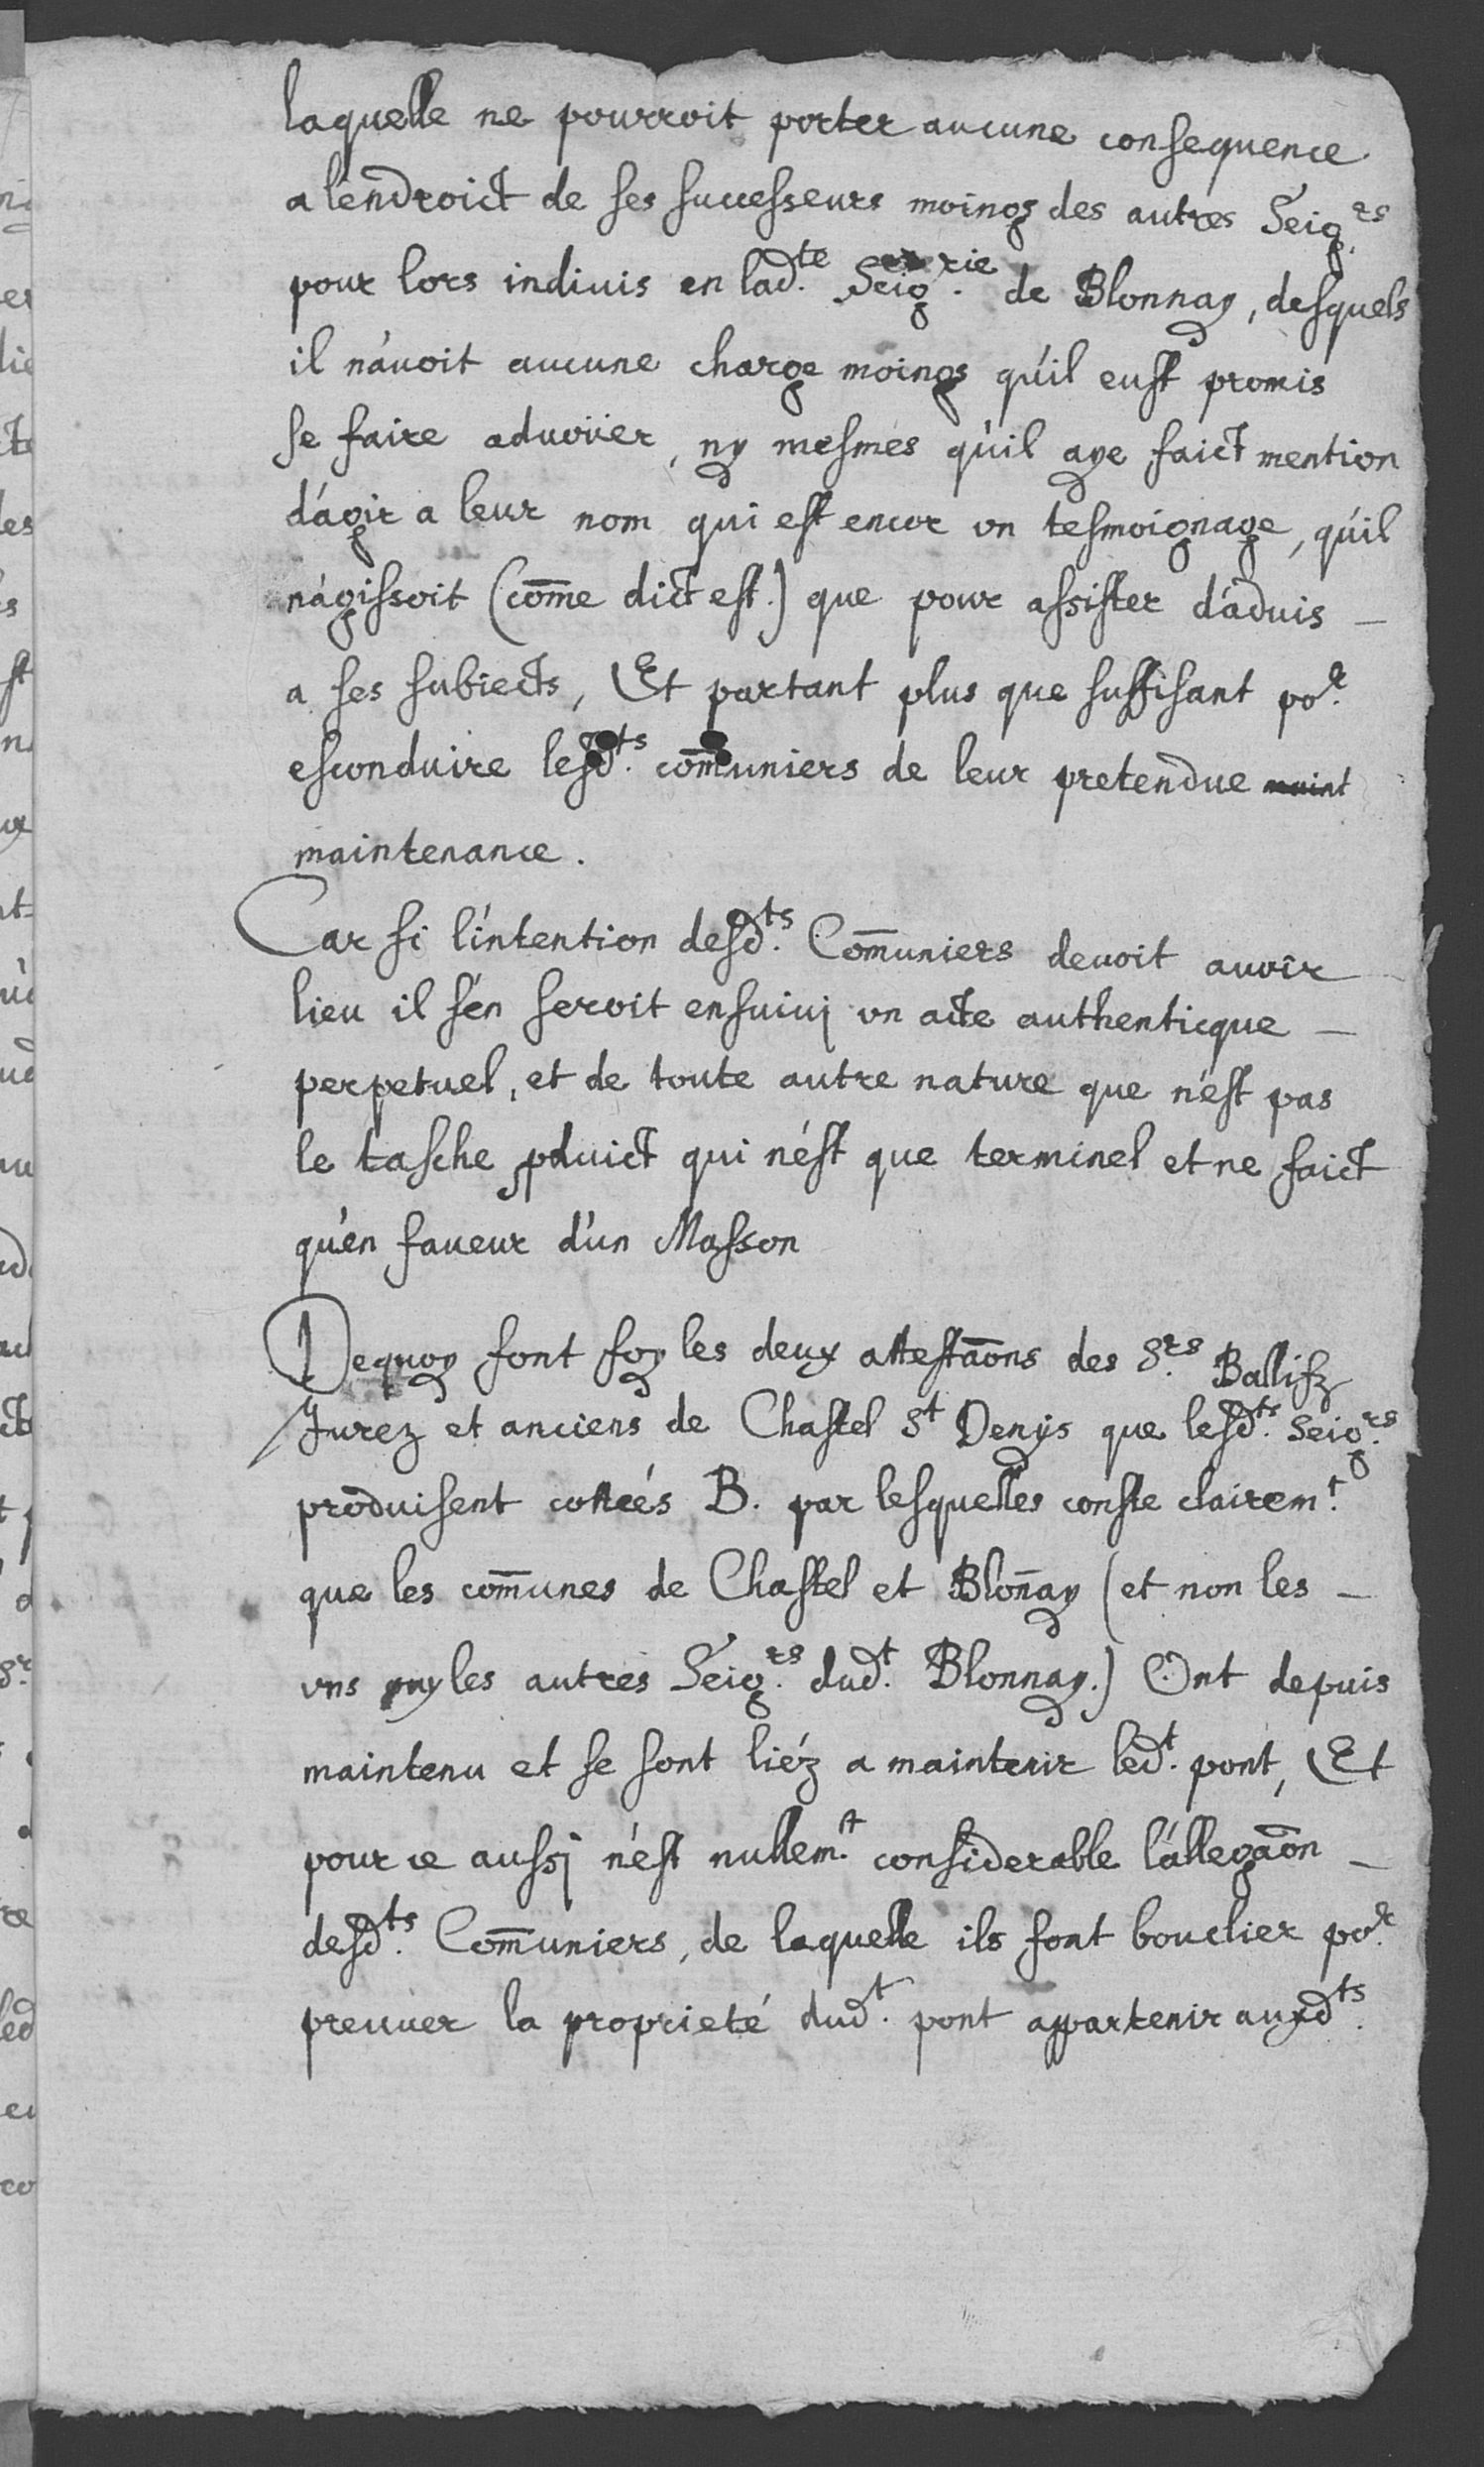 laquelle ne pourroit porter aucune consequence
a l'endroict de ses successeurs moings des autres Seig.rs
pour lors indiuis en lad.te Seig.rie de Blonnay, desquels
il n'auoit aucune charge moings qu'il eust promis
se faire aduoüer, ny mesmes qu'il aye faict mention
d'agir a leur nom qui est encor vn tesmoignage, qu'il
n'agissoit (com̄e dict est.) que pour assister d'aduis –
a ses subiects, Et partant plus que suffisant po.r
esconduire lesd.ts com̄uniers de leur pretendue maint
maintenance.
Car si l'intention desd.ts Com̄uniers deuoit auoir
lieu il s'en seroit ensuiuj vn acte authenticque –
perpetuel, et de toute autre nature que n'est pas
le tasche pduict qui n'est que terminel et ne faict
qu'en faueur d'un Masson
Dequoy font foy les deux attestaōns des S.rs Ballifz
Jurez et anciens de Chastel St Denys que lesd.ts Seig.rs
produisent cottées B. par lesquelles conste clairem.t
que les com̄unes de Chastel et Blon̄ay (et non les –
vns ny les autres Seig.rs dud.t Blonnay.) Ont depuis
maintenu et se sont liéz a maintenir led.t pont, Et
pour ce aussj n'est nullem.t considerable l'allegaōn –
desd.ts Com̄uniers, de laquelle ils font bouclier po.r
preuuer la proprieté dud.t pont appartenir auxd.ts